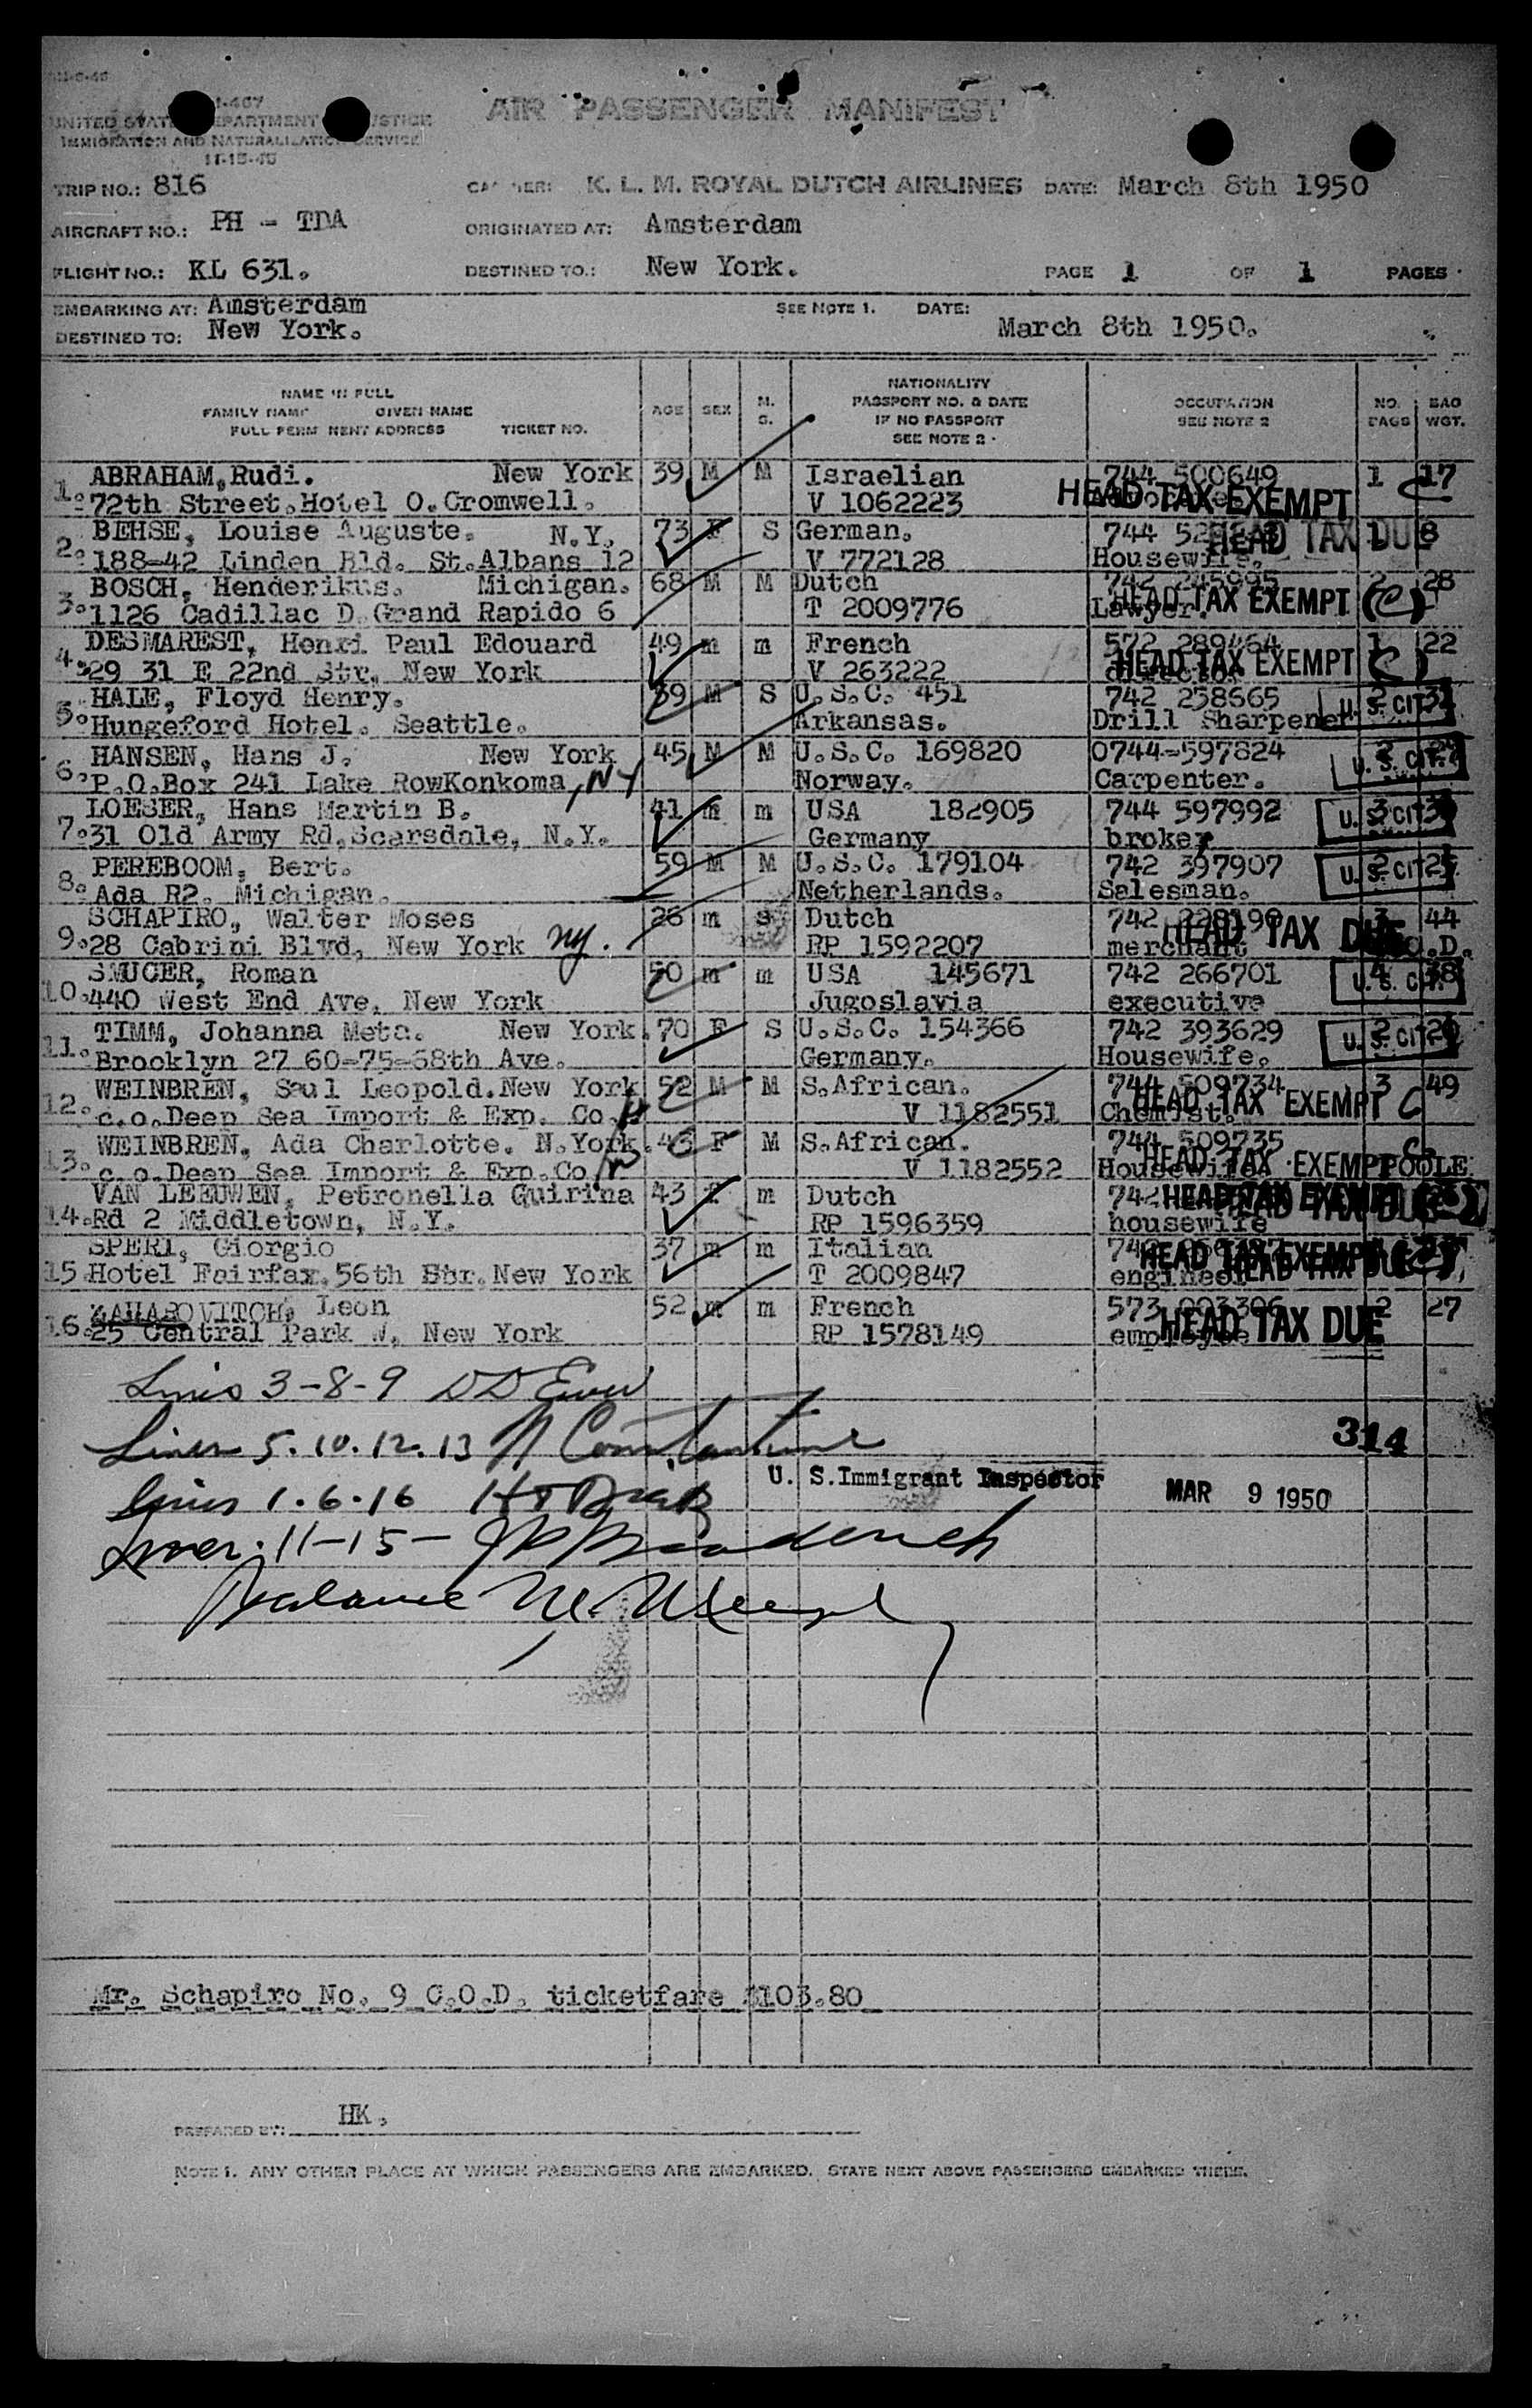 AIR PASSENGER MANIFEST
IMMIGRATION AND NATURALIZATION SERVICE
11-15-45
TRIP NO.: 816 K. L. M. ROYAL DUTCH AIRLINES DATE: March 8th 1950
AIRCRAFT NO.: PH - TDA ORIGINATED AT: Amsterdam
FLIGHT NO.: KL 631. DESTINED TO.: New York. PAGE 1 OF 1 PAGES
EMBARKING AT: Amsterdam SEE NOTE 1. DATE:
DESTINED TO: New York. March 8th 1950.
NAME IN FULL
FAMILY NAME GIVEN NAME
FULL PERMANENT ADDRESS TICKET NO.
AGE SEX M. S.
NATIONALITY
PASSPORT NO. & DATE
IF NO PASSPORT
SEE NOTE 2
OCCUPATION
SEE NOTE 2
NO. BAGS BAG WGT.
1. ABRAHAM, Rudi. New York 39 M M Israelian 744 500649 1 17
72th Street. Hotel O. Cromwell. V 1062223 HEAD TAX EXEMPT
2. BEHSE, Louise Auguste. N.Y. 73 F S German. 744 HEAD TAX DUE 1 8
188-42 Linden Bld. St.Albans 12 V 772128 Housewife.
3. BOSCH, Henderikus. Michigan. 68 M M Dutch 742 245995 2 28
1126 Cadillac D. Grand Rapido 6 T 2009776 Lawyer. HEAD TAX EXEMPT (C)
4. DESMAREST, Henri Paul Edouard 49 m m French 572 289464 1 22
29 31 E 22nd Str. New York V 263222 director HEAD TAX EXEMPT
5. HALE, Floyd Henry. 39 M S U.S.C. 451 742 258665 2
Hungeford Hotel. Seattle. Arkansas. Drill Sharpener U. S. CIT.
6. HANSEN, Hans J. New York 45 M M U.S.C. 169820 0744-597824
P.O.Box 241 Lake RowKonkoma, NY Norway. Carpenter. U. S. CIT.
7. LOESER, Hans Martin B. 41 m m USA 182905 744 597992 3
31 Old Army Rd. Scarsdale, N.Y. Germany broker U. S. CIT.
8. PEREBOOM, Bert. 59 M M U.S.C. 179104 742 397907 2
Ada R2. Michigan. Netherlands. Salesman. U. S. CIT.
9. SCHAPIRO, Walter Moses 26 m s Dutch 742 3 44
28 Cabrini Blvd, New York NY. RP 1592207 merchant HEAD TAX DUE C.O.D.
10. SMUCER, Roman 50 m m USA 145671 742 266701 4 38
440 West End Ave. New York Jugoslavia executive U. S. CIT.
11. TIMM, Johanna Meta. New York. 70 F S U.S.C. 154366 742 393629 2
Brooklyn 27 60-75-68th Ave. Germany. Housewife. U. S. CIT.
12. WEINBREN, Saul Leopold. New York 52 M M S.African. 744 509734 3 49
c.o. Deep Sea Import & Exp. Co. V 1182551 Chemist. HEAD TAX EXEMPT C
13. WEINBREN, Ada Charlotte. N.York. 43 F M S.African. 744 509735
c.o. Deep Sea Import & Exp.Co. V 1182552 Housewife. HEAD TAX EXEMPT POOLE
14. VAN LEEUWEN, Petronella Quirina 43 F m Dutch 742 HEAD TAX EXEMPT
Rd 2 Middletown, N.Y. RP 1596359 housewife HEAD TAX DUE
15. SPERI, Giorgio 37 m m Italian HEAD TAX EXEMPT
Hotel Fairfax. 56th Str. New York T 2009847 engineer HEAD TAX DUE
16. ZAHAROVITCH, Leon 52 m m French 573 093306 2 27
25 Central Park W, New York RP 1578149 employee HEAD TAX DUE
Lines 3-8-9
Lines 5.10.12.13 N Constantine
314
U. S. Immigrant Inspector MAR 9 1950
Lines 1.6.16
Lines 11-15-
Balance
Mr. Schapiro No. 9 C.O.D. ticketfare $103.80
PREPARED BY: HK.
NOTE 1. ANY OTHER PLACE AT WHICH PASSENGERS ARE EMBARKED. STATE NEXT ABOVE PASSENGERS EMBARKED THERE.